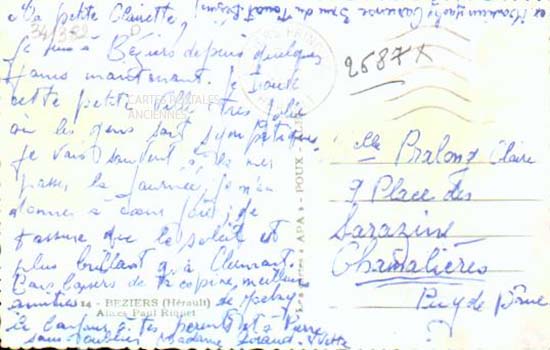 Ma petite Clairette,
Je suis à Béziers depuis quelques
jours maintenant. Je trouve
cette petite ville très jolie
où les gens sont sympathiques.
Je vais souvent à la mer
passer la journée, je m'en
donnes à coeur joie; je
t'assure que le soleil est
plus brillant qu'à Clermont.
Bons baisers de ta copine, meilleures
amitiés de
le bonjour à tes parents et à Pierre
sans oublier Madame
CARTES POSTALES
ANCIENNES
14 - BEZIERS (Hérault)
Allées Paul Riquet
"APA" - POUX
34/3
2587X
Mlle Pralong Claire
9 Place des
Sarazins
Chamalières
Puy de Dôme